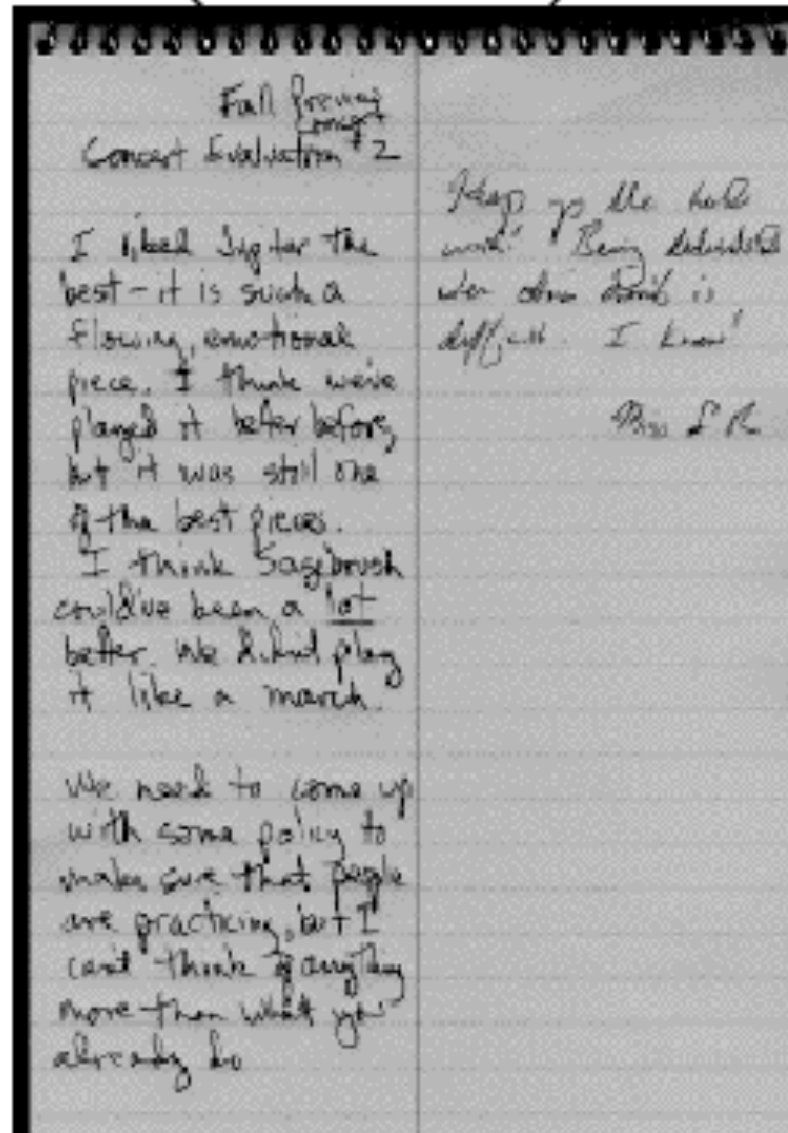 Fall Preview
Concert
Concert Evaluation #2
I liked Jupiter the
best - it is such a
flowing, emotional
piece. I think we've
played it better before,
but it was still one
of the best pieces.
I think Sagebrush
could've been a lot
better. We didn't play
it like a march.
We need to come up
with some policy to
make sure that people
are practicing, but I
can't think of anything
more than what you
already do
Keep up the hard
work! Being dedicated
when others don't is
difficult. I know!